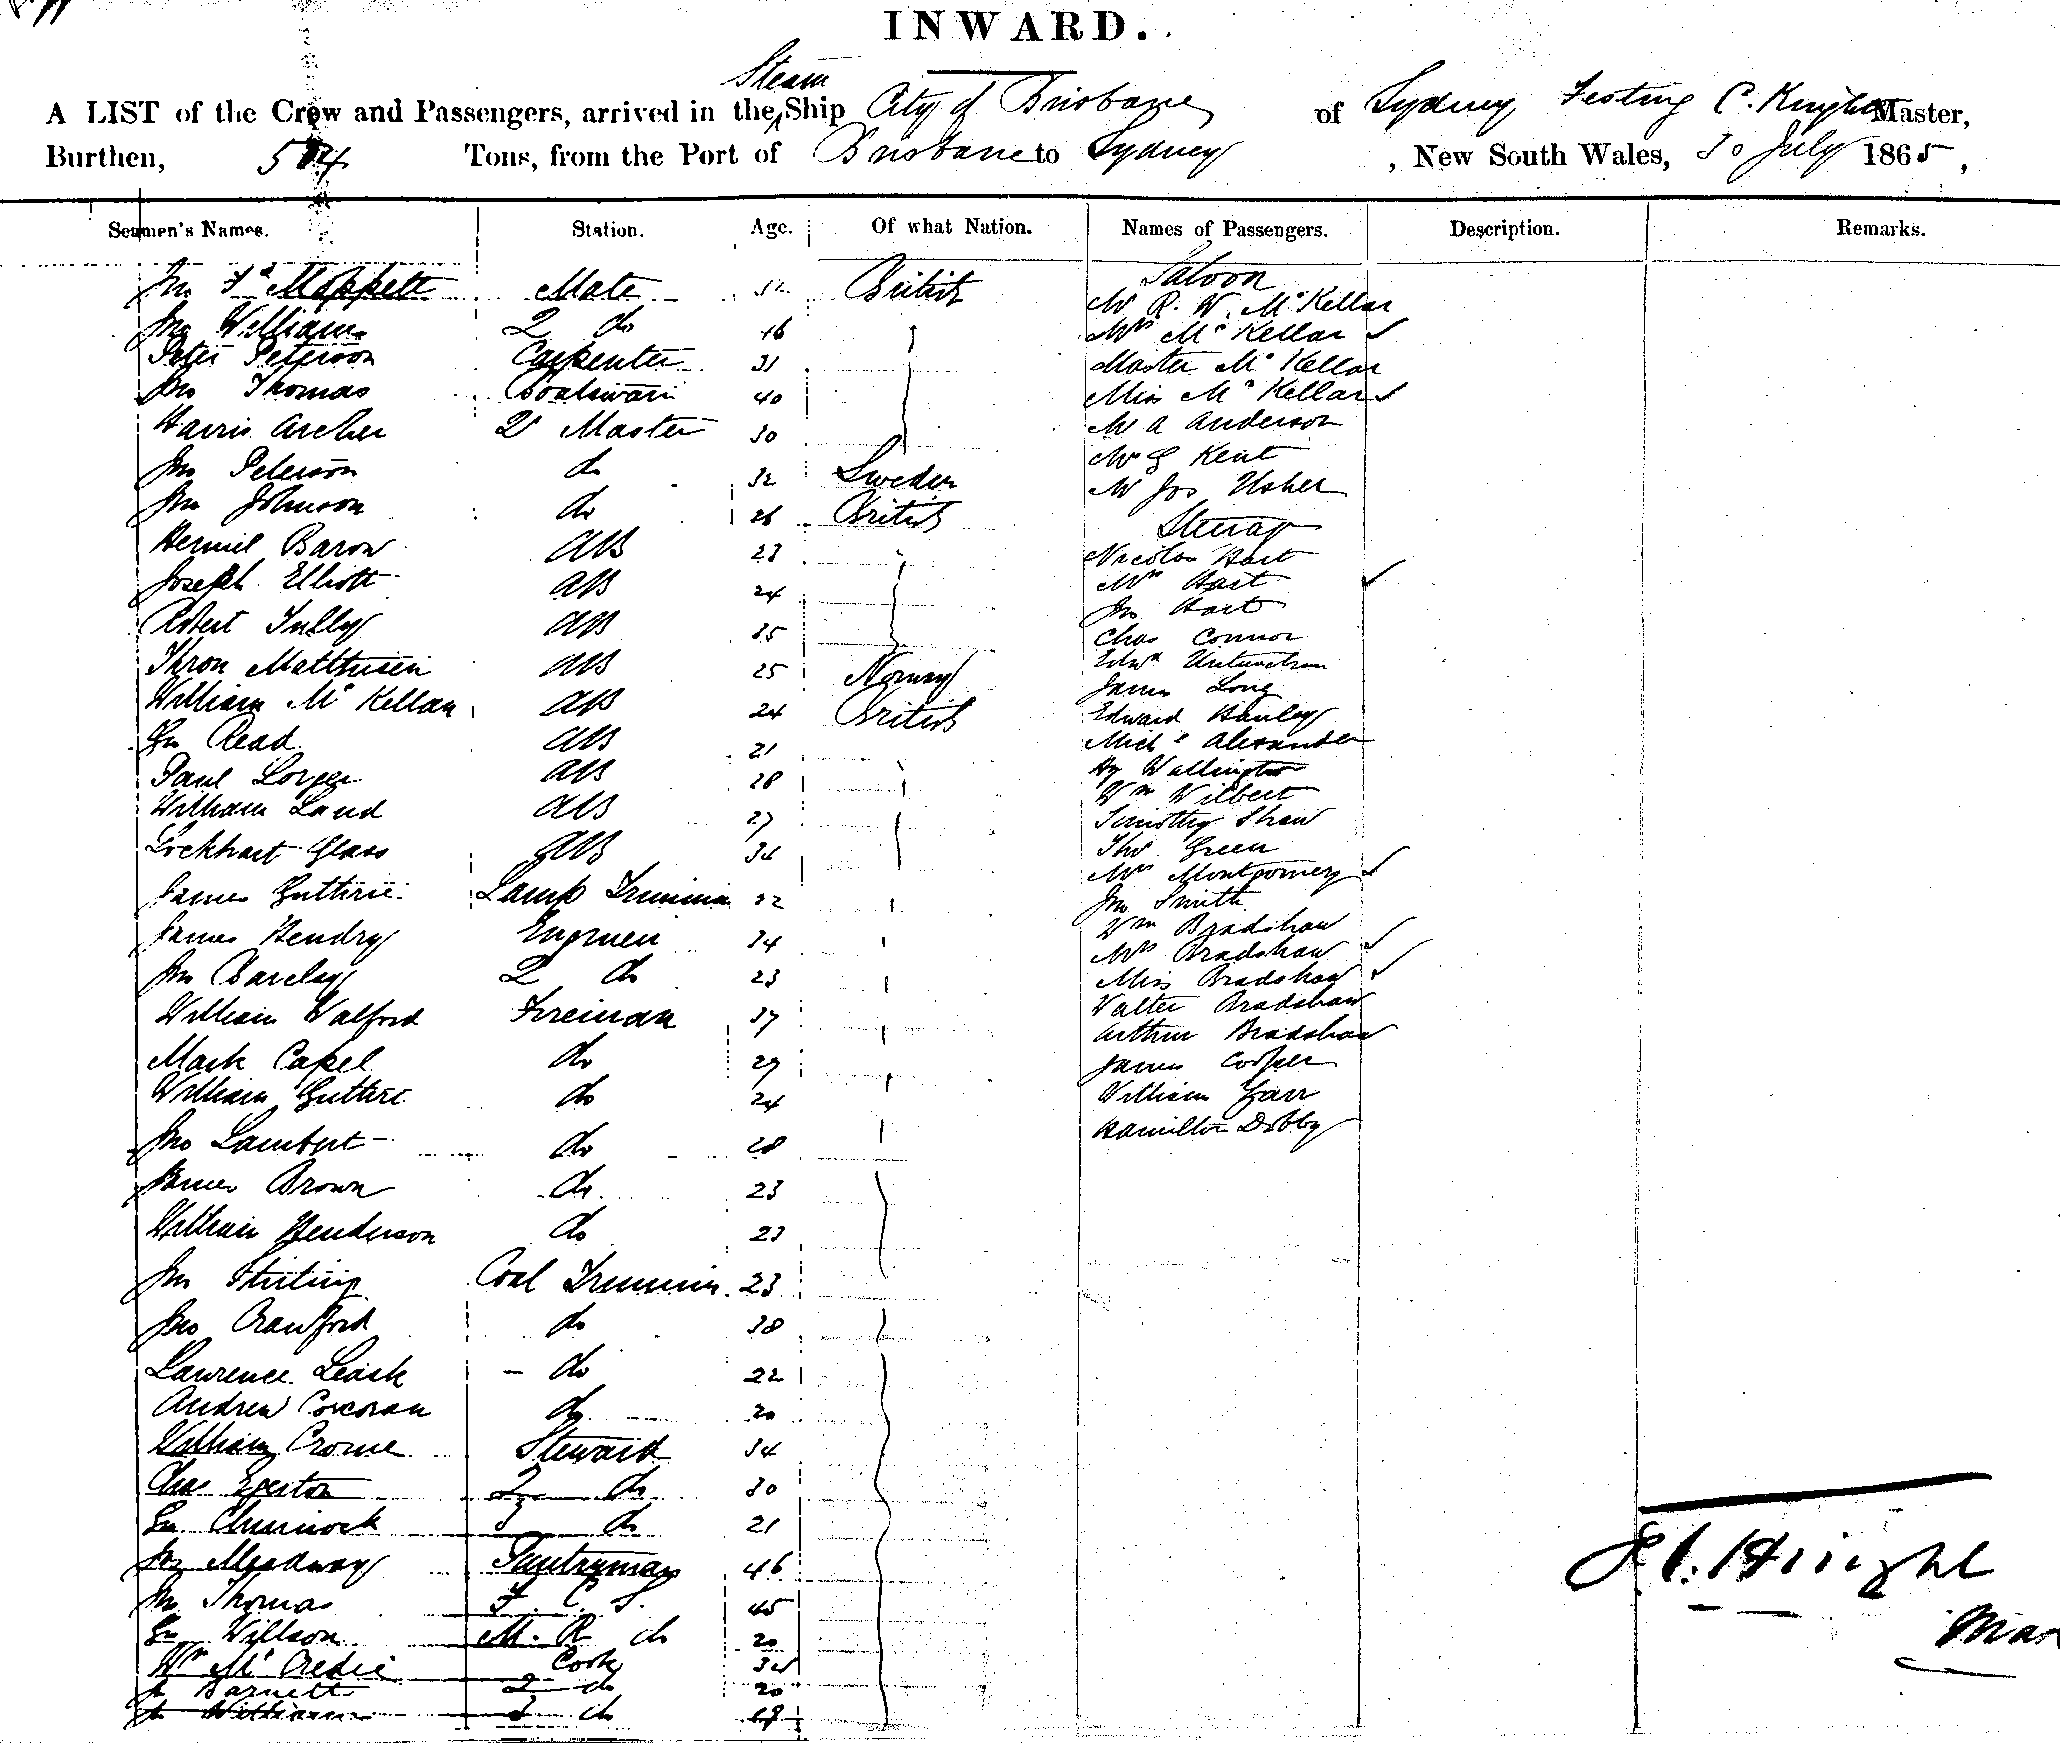 INWARD.
Steam
A LIST of the Crew and Passengers, arrived in the Ship City of Brisbane of Sydney Testing C. Knight Master,
Burthen, 504 Tons, from the Port of Brisbane to Sydney, New South Wales, 30 July 1865,
Seamen's Names. Station. Age. Of what Nation. Names of Passengers. Description. Remarks.
Saloon
Jno Fd Moppett Mate 32 British Mr R. W. McKellar
Jno Williams 2 do 46 Mrs McKellar
Peter Peterson Carpenter 31 Master McKellar
Jno Thomas Boatswain 40 Miss McKellar
Harris Archer 2r Master 30 Mr A Anderson
Jno Peterson do 32 Sweden Mr G Kent
Jno Johnson do 26 British Mr Jos Usher
Steerage
Baron AB 23 Nicolas Hart
Joseph Elliott AB 24 Mrs Hart
Robert Tully AB 35 Jno Hart
Chas Connor
AB 25 Norway Edwd
William McKellan AB 24 British James Long
Edward Hanley
Read AB 21 Michl Alexander
Paul AB 28 Hy Wallington
William Laud AB 27 Wm Wilbert
Timothy Shaw
Lockhart Glass AB 34 Tho Green
Mrs Montgomery
James Guthrie Lamp Trimmer 22 Jno Smith
Wm Bradshaw
James Hendry Enginer 34 Mrs Bradshaw
Jno Barclay 2 do 23 Miss Bradshaw
William Walford Fireman 37 Walter Bradshaw
Arthur Bradshaw
Mark Capel do 29 James Cooper
William Guthrie do 24 William Garr
Jno Lambert do 28 Hamilton Dobby
James Brown do 23
William Henderson do 23
Jno Stirling Coal Trimmer 23
Jno Crawford do 38
Lawrence Leask do 22
Andrew Corcoran do 20
William Crome Steward 34
Chas Egerton 2 do 30
Churnock 3 do 21
Jno Meadway Pantryman 46
Jno Thomas F. C. S. 45
Willson M. R do 20
Wm McCredie Cook 34
Barnett 2 do 20
Williams 3 do 19
C. Knight